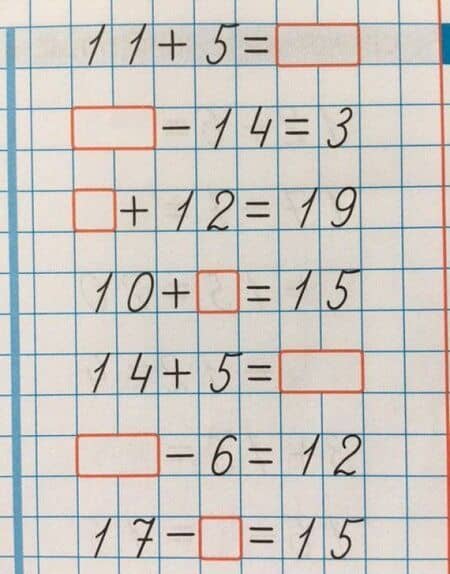 11 + 5 = □
□ - 14 = 3
□ + 12 = 19
10 + □ = 15
14 + 5 = □
□ - 6 = 12
17 - □ = 15